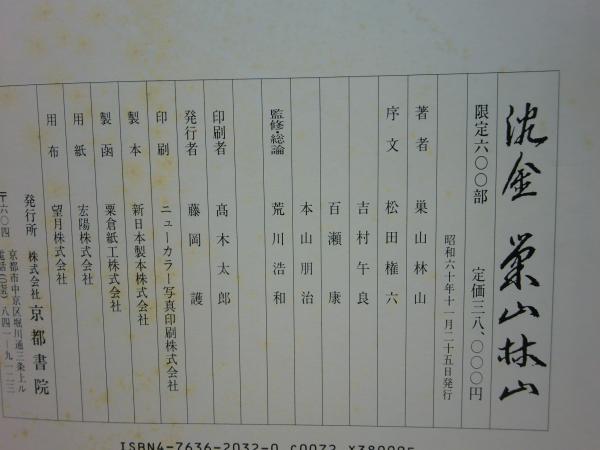 沈金 巣山林山
限定六〇〇部 定価三八、〇〇〇円
昭和六十年十一月二十五日発行
著者 巣山林山
序文 松田権六
吉村午良
百瀬康
本山朋治
監修・総論 荒川浩和
印刷者 髙木太郎
発行者 藤岡護
印刷 ニューカラー写真印刷株式会社
製本 新日本製本株式会社
製函 粟倉紙工株式会社
用紙 宏陽株式会社
用布 望月株式会社
発行所 株式会社 京都書院
〒六〇四 京都市中京区堀川通三条上ル
電話(〇七五)八四一―九一二三
ISBN4-7636-2032-0 C0072 ¥38000E